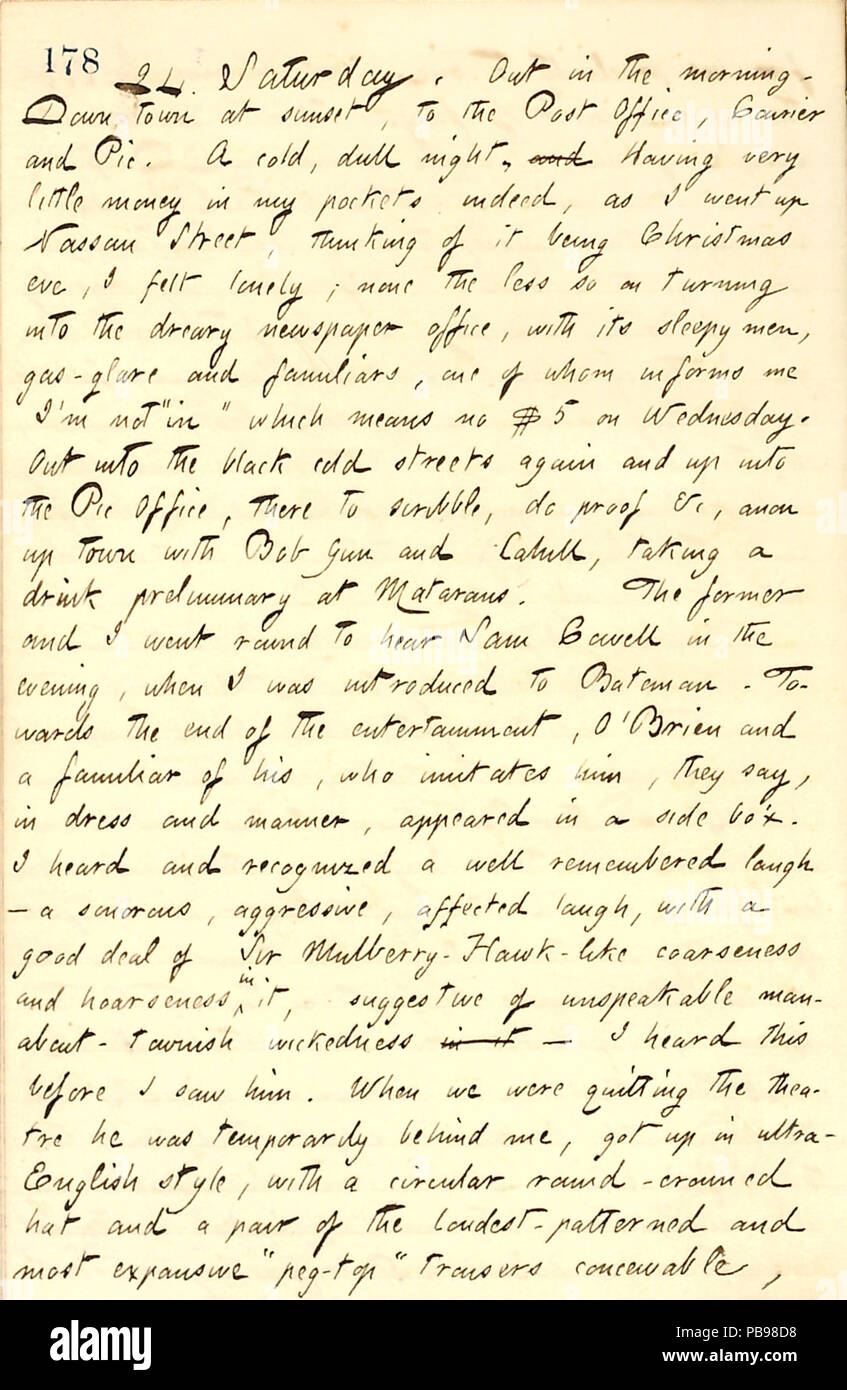 178
24. Saturday. Out in the morning.
Down town at sunset, to the Post Office, Courier
and Pic. A cold, dull night, and Having very
little money in my pockets indeed, as I went up
Nassau Street, thinking of it being Christmas
eve, I felt lonely; none the less so on turning
into the dreary newspaper office, with its sleepy men,
gas-glare and familiars, one of whom informs me
I'm not "in" which means no $5 on Wednesday.
Out into the black cold streets again and up into
the Pic Office, there to scribble, do proof &c, anon
up town with Bob Gun and Cahill, taking a
drink preliminary at Matarans. The former
and I went round to hear Sam Cowell in the
evening, when I was introduced to Bateman. To-
wards the end of the entertainment, O'Brien and
a familiar of his, who imitates him, they say,
in dress and manner, appeared in a side box.
I heard and recognized a well remembered laugh
— a sonorous, aggressive, affected laugh, with a
good deal of Sir Mulberry-Hawk-like coarseness
and hoarseness in it, suggestive of unspeakable man-
about-townish wickedness in it — I heard this
before I saw him. When we were quitting the thea-
tre he was temporarily behind me, got up in ultra-
English style, with a circular round-crowned
hat and a pair of the loudest-patterned and
most expansive "peg-top" trousers conceivable,
alamy
Image ID: PB98D8
www.alamy.com